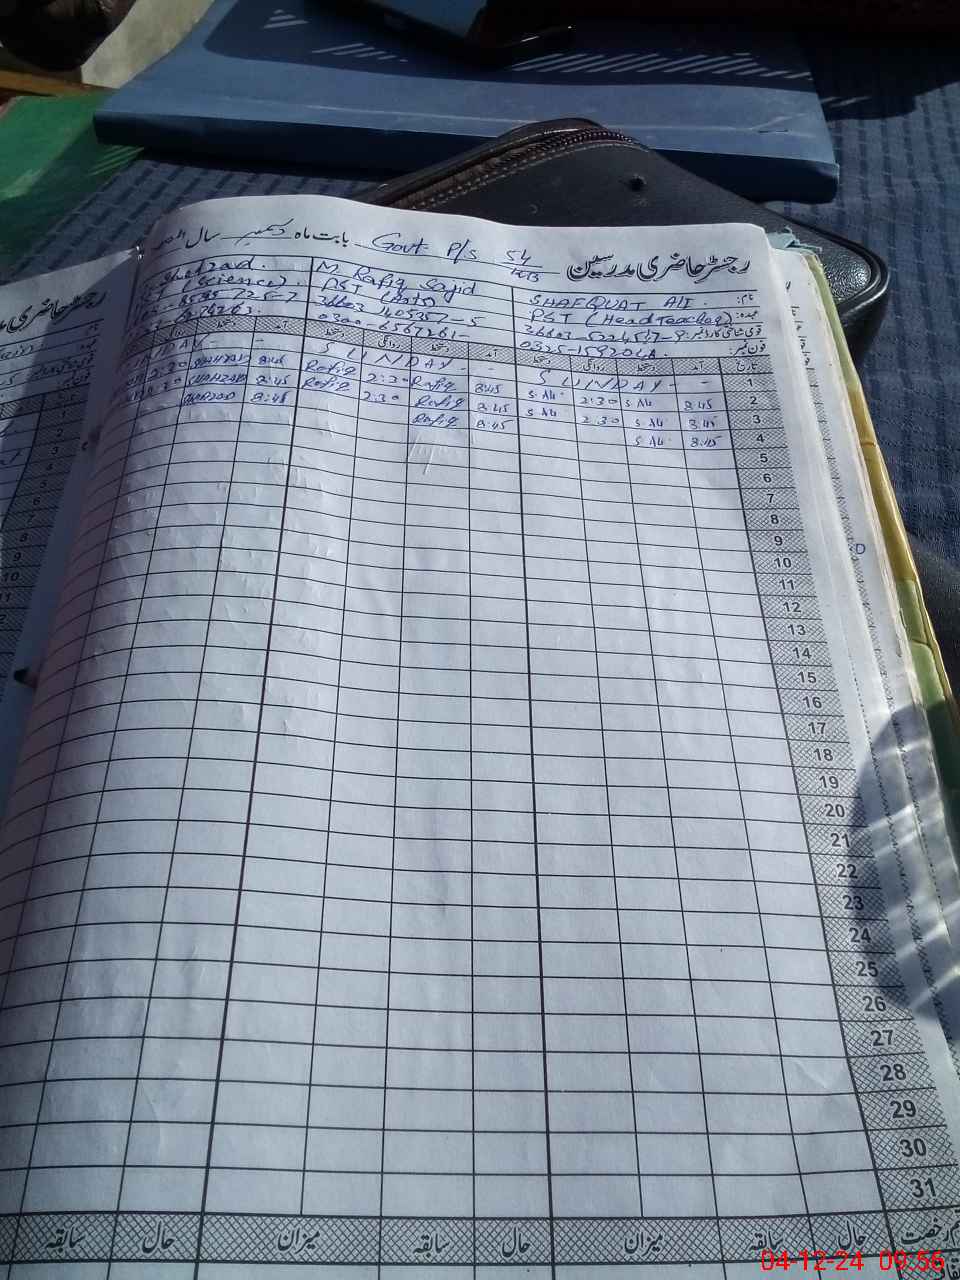 رجسٹر حاضری مدرسین Govt P/S 54/KB بابت ماہ دسمبر سال
نام: SHAFQUAT ALI.
عہدہ: PST (Head Teacher)
قومی شناختی کارڈ نمبر: 36603
فون نمبر:
M. Rafiq Sajid
PST (Arts)
36603 1405357-5
0300-6567261-
Shehzad.
(Science).
تاریخ آمد دستخط روانگی دستخط آمد دستخط روانگی دستخط آمد دستخط
1 - - SUNDAY - - SUNDAY -
2 8:45 S.Ali 2:30 S.Ali 8:45 Rafiq 2:30 Rafiq 8:45 SHAHZAD 2:30
3 8:45 S.Ali 2:30 S.Ali 8:45 Rafiq 2:30 Rafiq 8:45 SHAHZAD 2:30
4 8:45 S.Ali 8:45 Rafiq 8:45 SHAHZAD
5
6
7
8
9
10
11
12
13
14
15
16
17
18
19
20
21
22
23
24
25
26
27
28
29
30
31
رخصت حال سابقہ میزان حال سابقہ میزان حال سابقہ
04-12-24 09:56